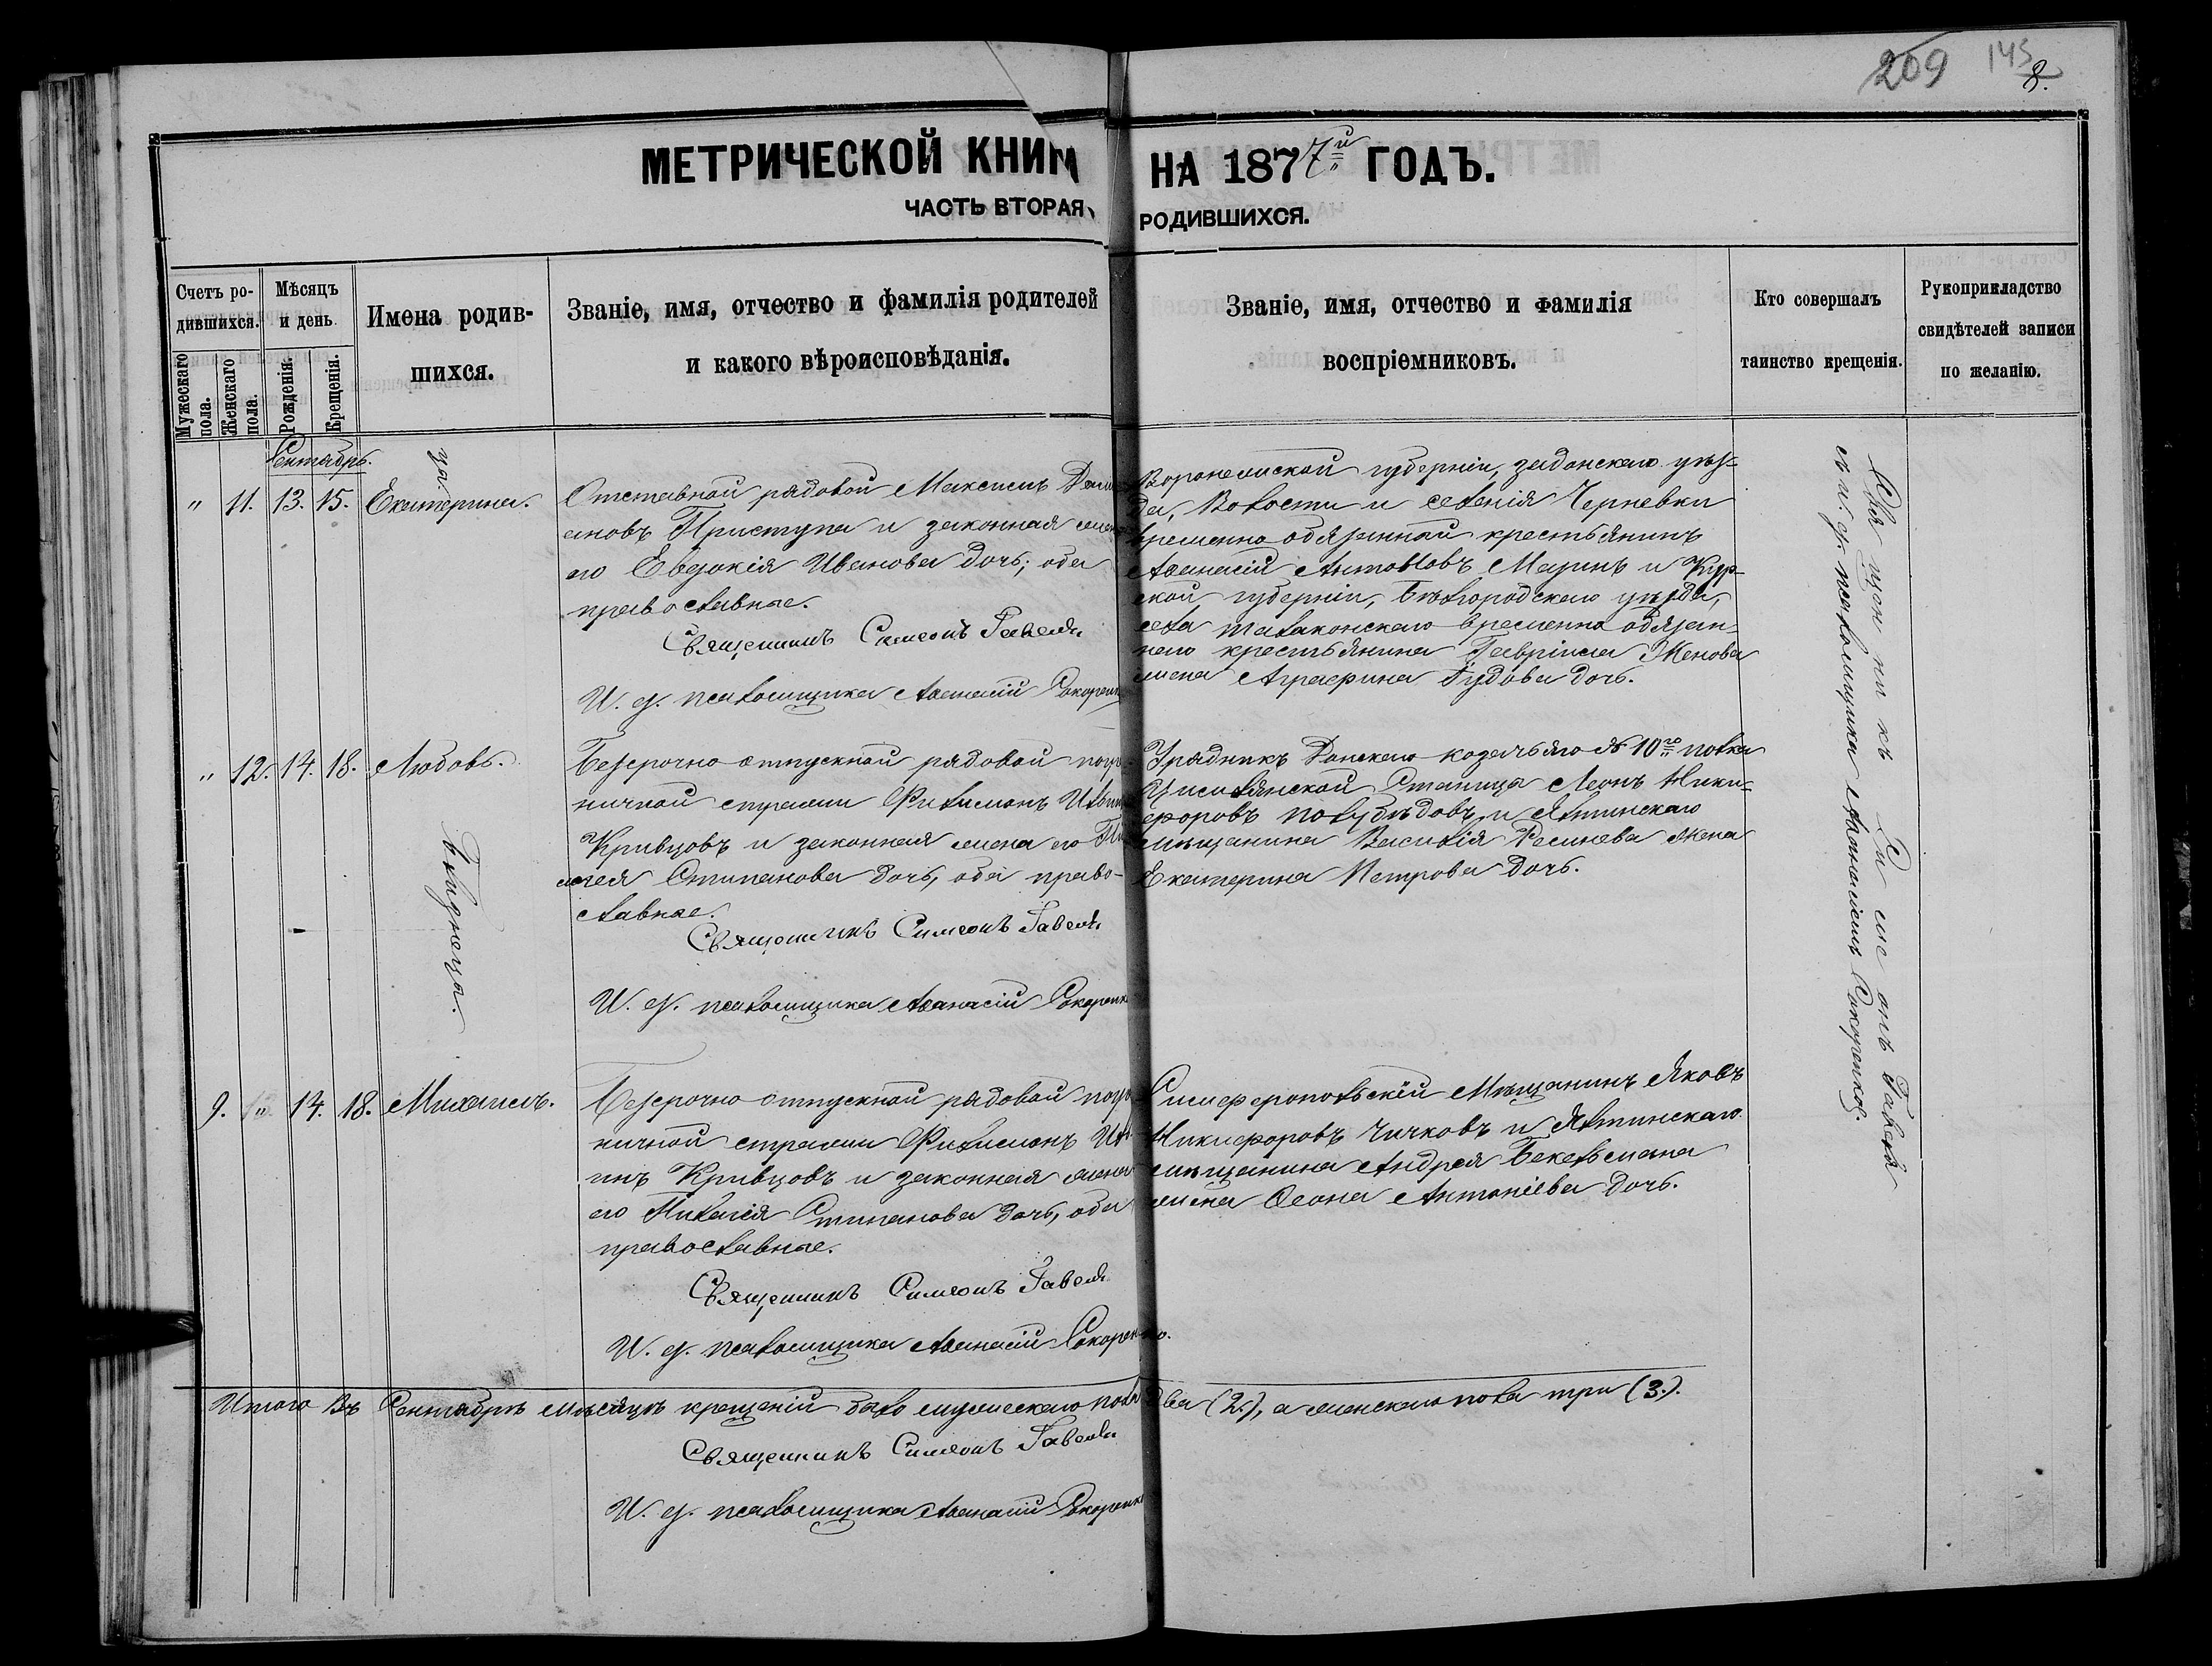 209 145
8.
МЕТРИЧЕСКОЙ КНИГ НА 1877й ГОДЪ.
ЧАСТЬ ВТОРАЯ, РОДИВШИХСЯ.
Счетъ ро-
дившихся.
Мужескаго пола.
Женскаго пола.
Мѣсяцъ
и день
Рожденія.
Крещенія.
Имена родив-
шихся.
Званіе, имя, отчество и фамилія родителей
и какого вѣроисповѣданія.
Званіе, имя, отчество и фамилія
воспріемниковъ.
Кто совершалъ
таинство крещенія.
Рукоприкладство
свидѣтелей записи
по желанію.
Сентябрь.
" 11. 13. 15. Екатерина.
Отставной рядовой Максимъ
ановъ Приступа и законная жена
его Евдокія Иванова дочь; оба
православные.
Священникъ Симеонъ Гавель
И. д. псаломщика Аѳанасій Сокоренко
Воронежской губерніи, задонскаго уѣз-
да, Волости и селенія Черневки
временно обязанный крестьянинъ
Аѳанасій Антоновъ Мазинъ и Кур-
ской губерніи, Бѣлгородскаго уѣзда,
села временно обязан-
наго крестьянина Гавріила Женова
жена Аграфина Гудова дочь.
" 12. 14. 18. Любовь.
Безсрочно отпускной рядовой погра-
ничной стражи Филимонъ
Кривцовъ и законная жена его
лагея Стипанова дочь, оба право-
славные.
Священникъ Симеонъ Гавель
И. д. псаломщика Аѳанасій Сокоренко
Урядникъ Донскаго козачьяго № 10го полка
Цисилянской Станица Леонъ Ники-
форовъ и Ялтинскаго
мѣщанина Василія жена
Екатерина Петрова дочь.
9. " 14. 18. Михаилъ.
Безсрочно отпускной рядовой погра
ничной стражи Филимонъ Ил
инъ Кривцовъ и законная жена
его Пилагія Стипанова дочь, оба
православные.
Священникъ Симеонъ Гавель
И. д. псаломщика Аѳанасій Сокоренко.
Симферопольскій Мѣщанинъ Яковъ
Никифоровъ Чичковъ и Ялтинскаго
мѣщанина Андрея Бекельмана
жена Ѳеона Антоніева дочь.
Священникъ Симеонъ Гавель
съ и. д. псаломщика Аѳанасіемъ Сокоренко.
Итого въ Сентябрѣ мѣсяцѣ крещеній было мужескаго пола два (2.), а женскаго пола три (3.).
Священникъ Симеонъ Гавель
И. д. псаломщика Аѳанасій Сокоренко